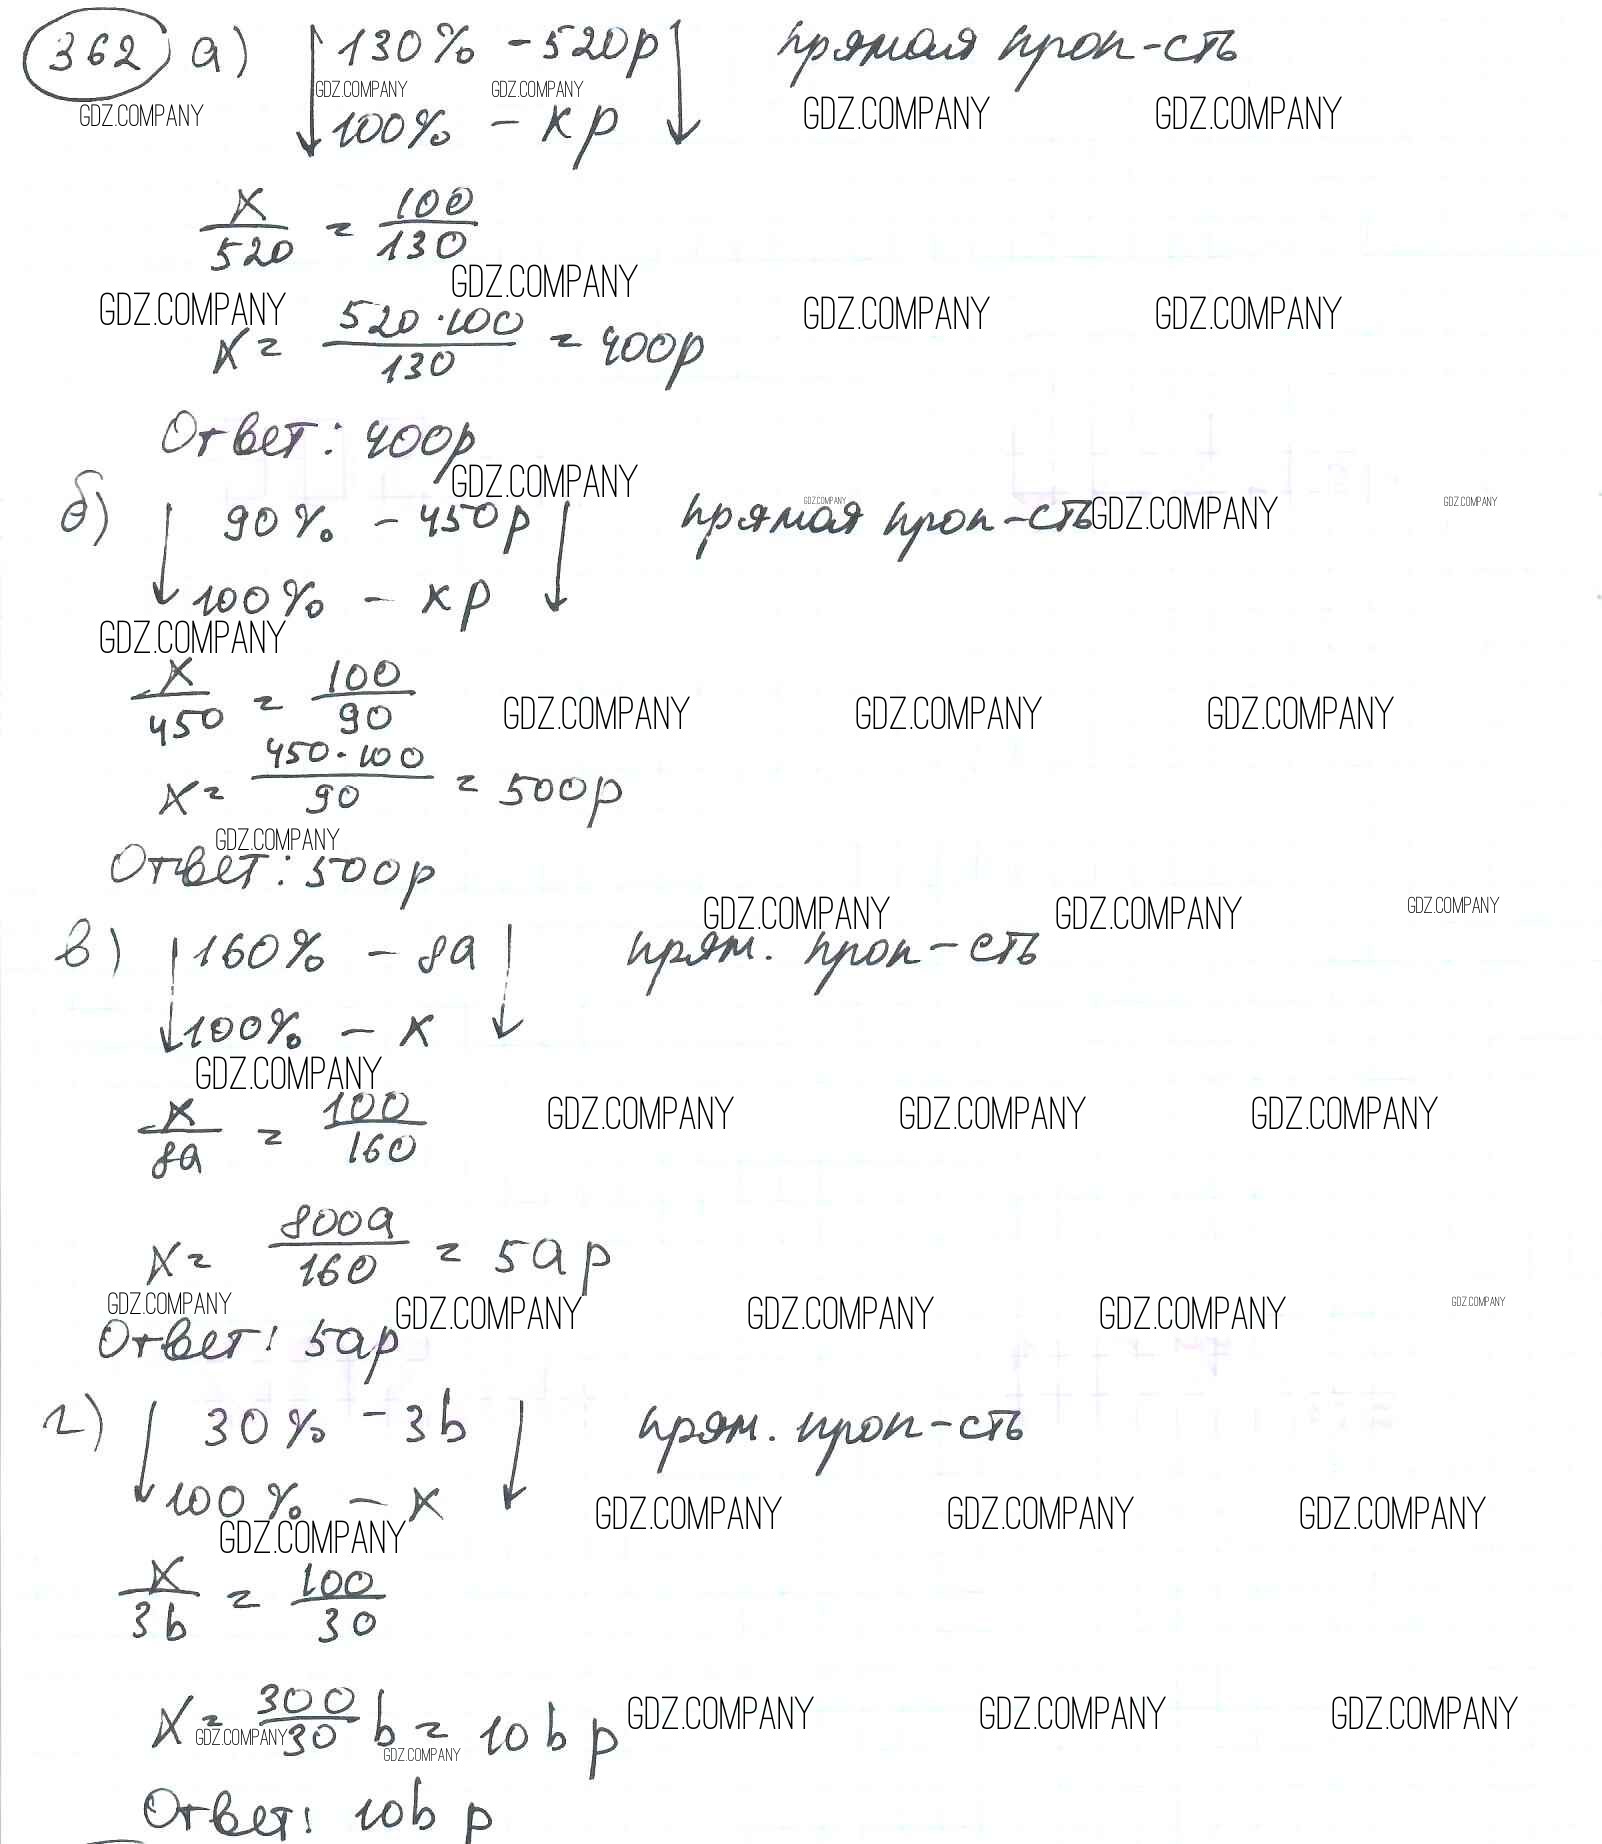 362 а) 130% - 520р прямая проп-сть
GDZ.COMPANY GDZ.COMPANY GDZ.COMPANY GDZ.COMPANY GDZ.COMPANY
100% - хр
x/520 = 100/130
GDZ.COMPANY GDZ.COMPANY GDZ.COMPANY GDZ.COMPANY
x = 520·100/130 = 400р
Ответ: 400р
GDZ.COMPANY
б) 90% - 450р прямая проп-сть
GDZ.COMPANY GDZ.COMPANY GDZ.COMPANY
100% - хр
GDZ.COMPANY
x/450 = 100/90
GDZ.COMPANY GDZ.COMPANY GDZ.COMPANY
x = 450·100/90 = 500р
GDZ.COMPANY
Ответ: 500р
GDZ.COMPANY GDZ.COMPANY GDZ.COMPANY
в) 160% - 8a прям. проп-сть
100% - x
GDZ.COMPANY
x/8a = 100/160
GDZ.COMPANY GDZ.COMPANY GDZ.COMPANY
x = 800a/160 = 5a р
GDZ.COMPANY GDZ.COMPANY GDZ.COMPANY GDZ.COMPANY GDZ.COMPANY
Ответ: 5aр
г) 30% - 3b прям. проп-сть
100% - x
GDZ.COMPANY GDZ.COMPANY GDZ.COMPANY GDZ.COMPANY
x/3b = 100/30
x = 300/30 b = 10b р
GDZ.COMPANY GDZ.COMPANY GDZ.COMPANY GDZ.COMPANY GDZ.COMPANY
Ответ: 10b р